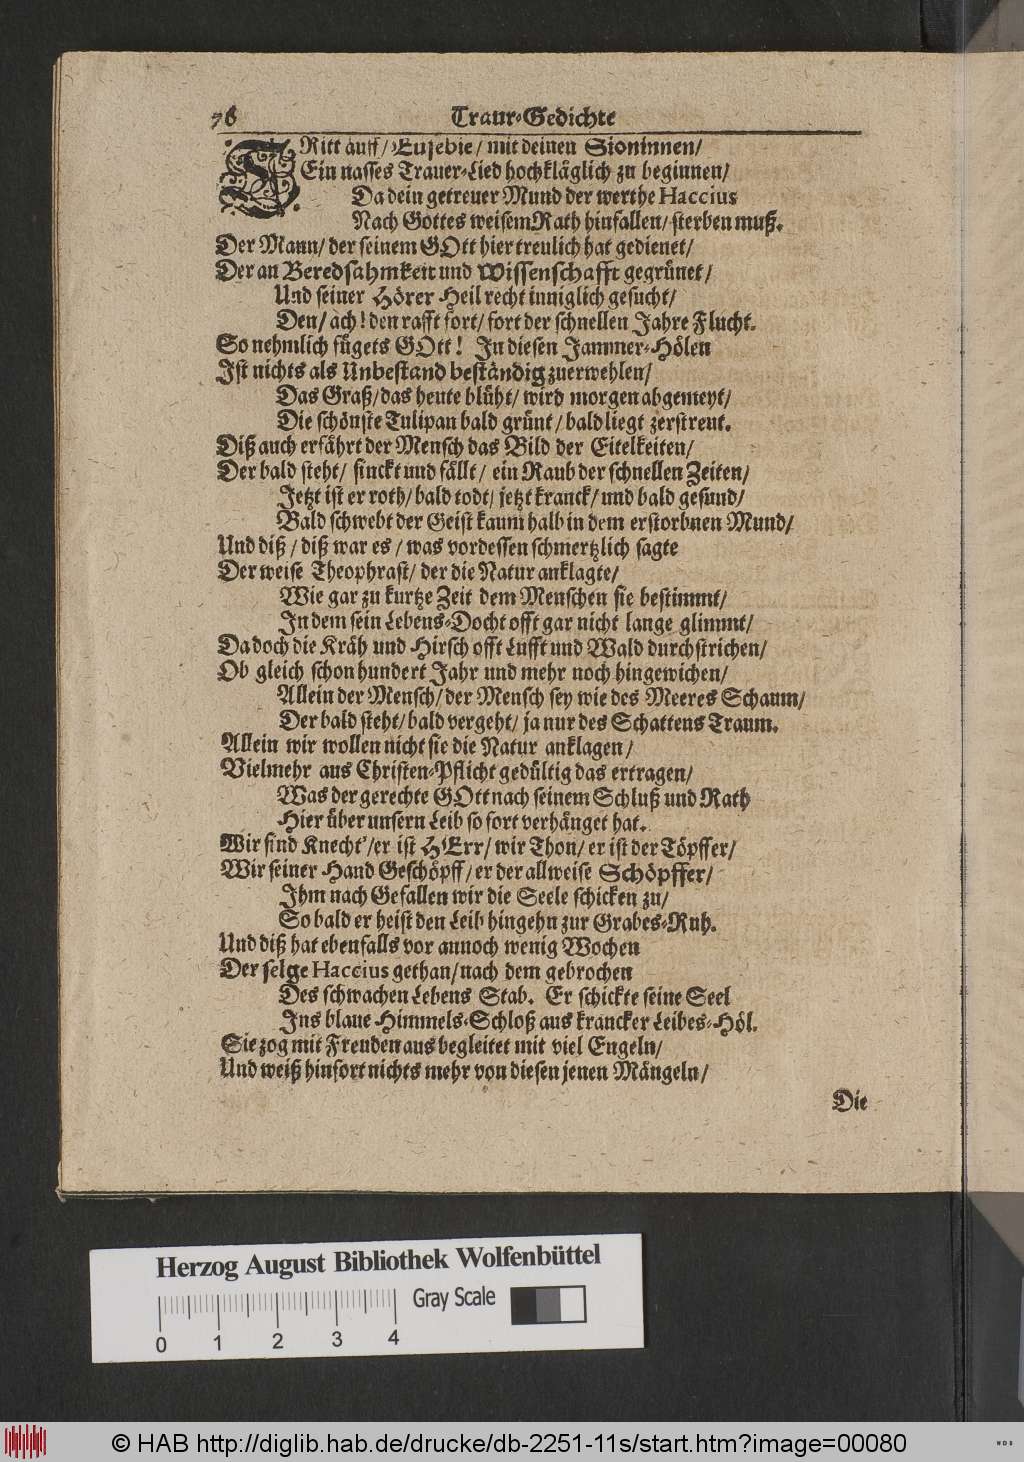 76 Traur-Gedichte
TRitt auff/ Eusebie/ mit deinen Sioninnen/
Ein nasses Trauer-Lied hochkläglich zu beginnen/
Da dein getreuer Mund der werthe Haccius
Nach Gottes weisem Rath hinfallen/ sterben muß.
Der Mann/ der seinem GOtt hier treulich hat gedienet/
Der an Beredsahmkeit und Wissenschafft gegrünet/
Und seiner Hörer Heil recht inniglich gesucht/
Den/ ach! den rafft fort/ fort der schnellen Jahre Flucht.
So nehmlich fügets GOtt! In diesen Jammer-Hölen
Ist nichts als Unbestand beständig zuerwehlen/
Das Graß/ das heute blüht/ wird morgen abgemeyt/
Die schönste Tulipan bald grünt/ bald liegt zerstreut.
Diß auch erfährt der Mensch das Bild der Eitelkeiten/
Der bald steht/ sinckt und fällt/ ein Raub der schnellen Zeiten/
Jetzt ist er roth/ bald todt/ jetzt kranck/ und bald gesund/
Bald schwebt der Geist kaum halb in dem erstorbnen Mund/
Und diß/ diß war es/ was vordessen schmertzlich sagte
Der weise Theophrast/ der die Natur anklagte/
Wie gar zu kurtze Zeit dem Menschen sie bestimmt/
In dem sein Lebens-Docht offt gar nicht lange glimmt/
Da doch die Kräh und Hirsch offt Lufft und Wald durchstrichen/
Ob gleich schon hundert Jahr und mehr noch hingewichen/
Allein der Mensch/ der Mensch sey wie des Meeres Schaum/
Der bald steht/ bald vergeht/ ja nur des Schattens Traum.
Allein wir wollen nicht sie die Natur anklagen/
Vielmehr aus Christen-Pflicht gedültig das ertragen/
Was der gerechte GOtt nach seinem Schluß und Rath
Hier über unsern Leib so fort verhänget hat.
Wir sind Knecht'/ er ist HErr/ wir Thon/ er ist der Töpffer/
Wir seiner Hand Geschöpff/ er der allweise Schöpffer/
Ihm nach Gefallen wir die Seele schicken zu/
So bald er heist den Leib hingehn zur Grabes-Ruh.
Und diß hat ebenfalls vor annoch wenig Wochen
Der selge Haccius gethan/ nach dem gebrochen
Des schwachen Lebens Stab. Er schickte seine Seel
Ins blaue Himmels-Schloß aus krancker Leibes-Höl.
Sie zog mit Freuden aus begleitet mit viel Engeln/
Und weiß hinfort nichts mehr von diesen jenen Mängeln/
Die
Herzog August Bibliothek Wolfenbüttel
Gray Scale
0 1 2 3 4
© HAB http://diglib.hab.de/drucke/db-2251-11s/start.htm?image=00080